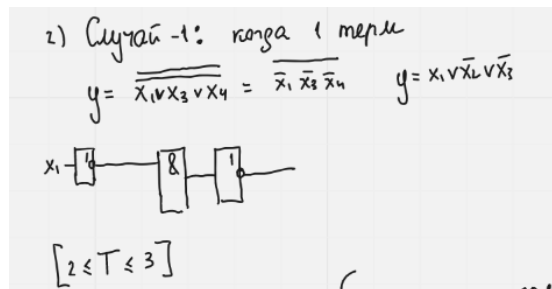 2) Случай -1: когда 1 терм
y = \overline{\overline{x₁ v x₃ v x₄}} = \overline{x̄₁ x̄₃ x̄₄}   y = x₁ v x̄₂ v x̄₃
x₁ 1 & 1
[2 ≤ T ≤ 3]